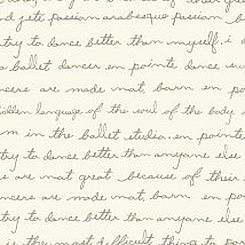 nd jeté passion arabesque passion b
try to dance better than myself. i d
a ballet dancer en pointe dance su
ncers are made not, born en po
hidden language of the soul of the body
m in the ballet studio. en pointe
try to dance better than anyone else
s are not great because of their
ncers are made not, born en po
try to dance better than anyone else
is the most difficult thing to